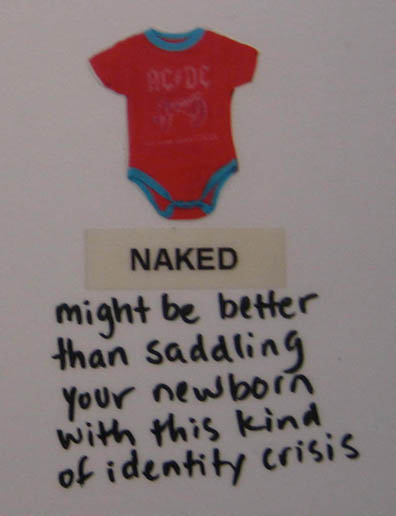 AC DC
NAKED
might be better
than saddling
your newborn
with this kind
of identity crisis